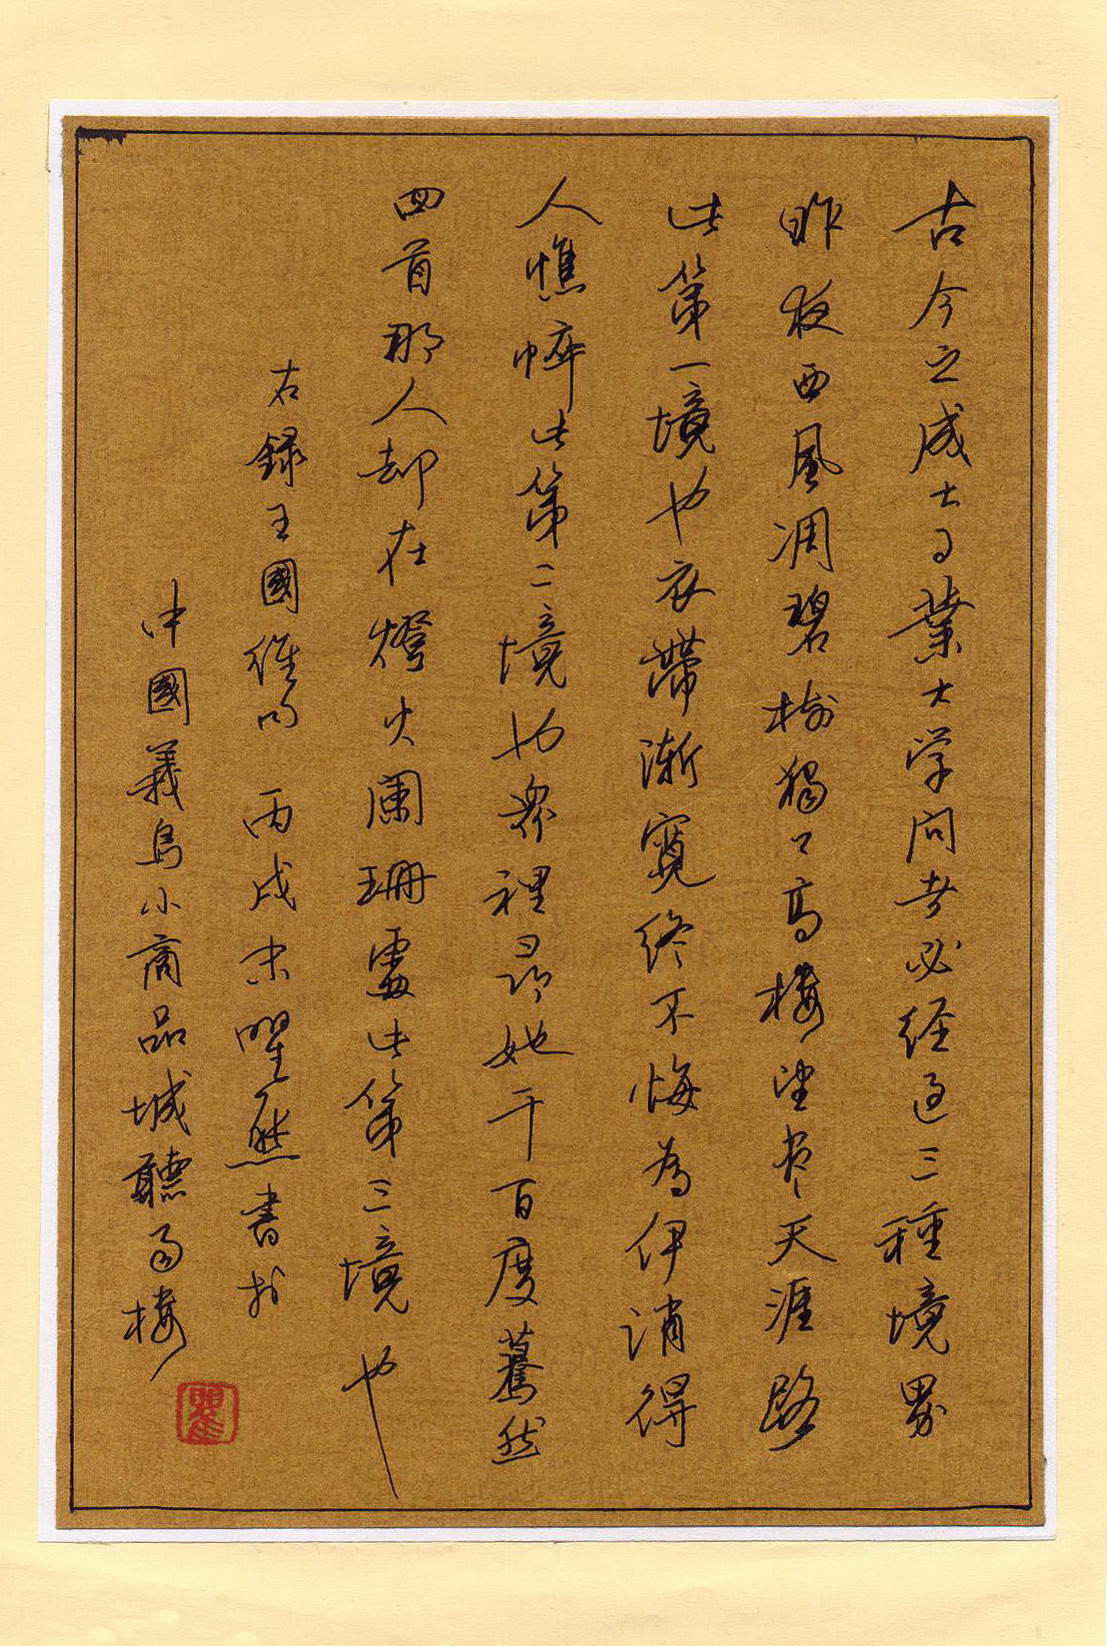 古今之成大事業大学问者必经过三種境界
昨夜西風凋碧樹獨上高樓望尽天涯路
此第一境也衣帶漸寬终不悔為伊消得
人憔悴此第二境也眾裡尋她千百度驀然
回首那人却在燈火闌珊處此第三境也
右錄王國維句 丙戌末瞿書於
中國義烏小商品城聽雨樓
瞿